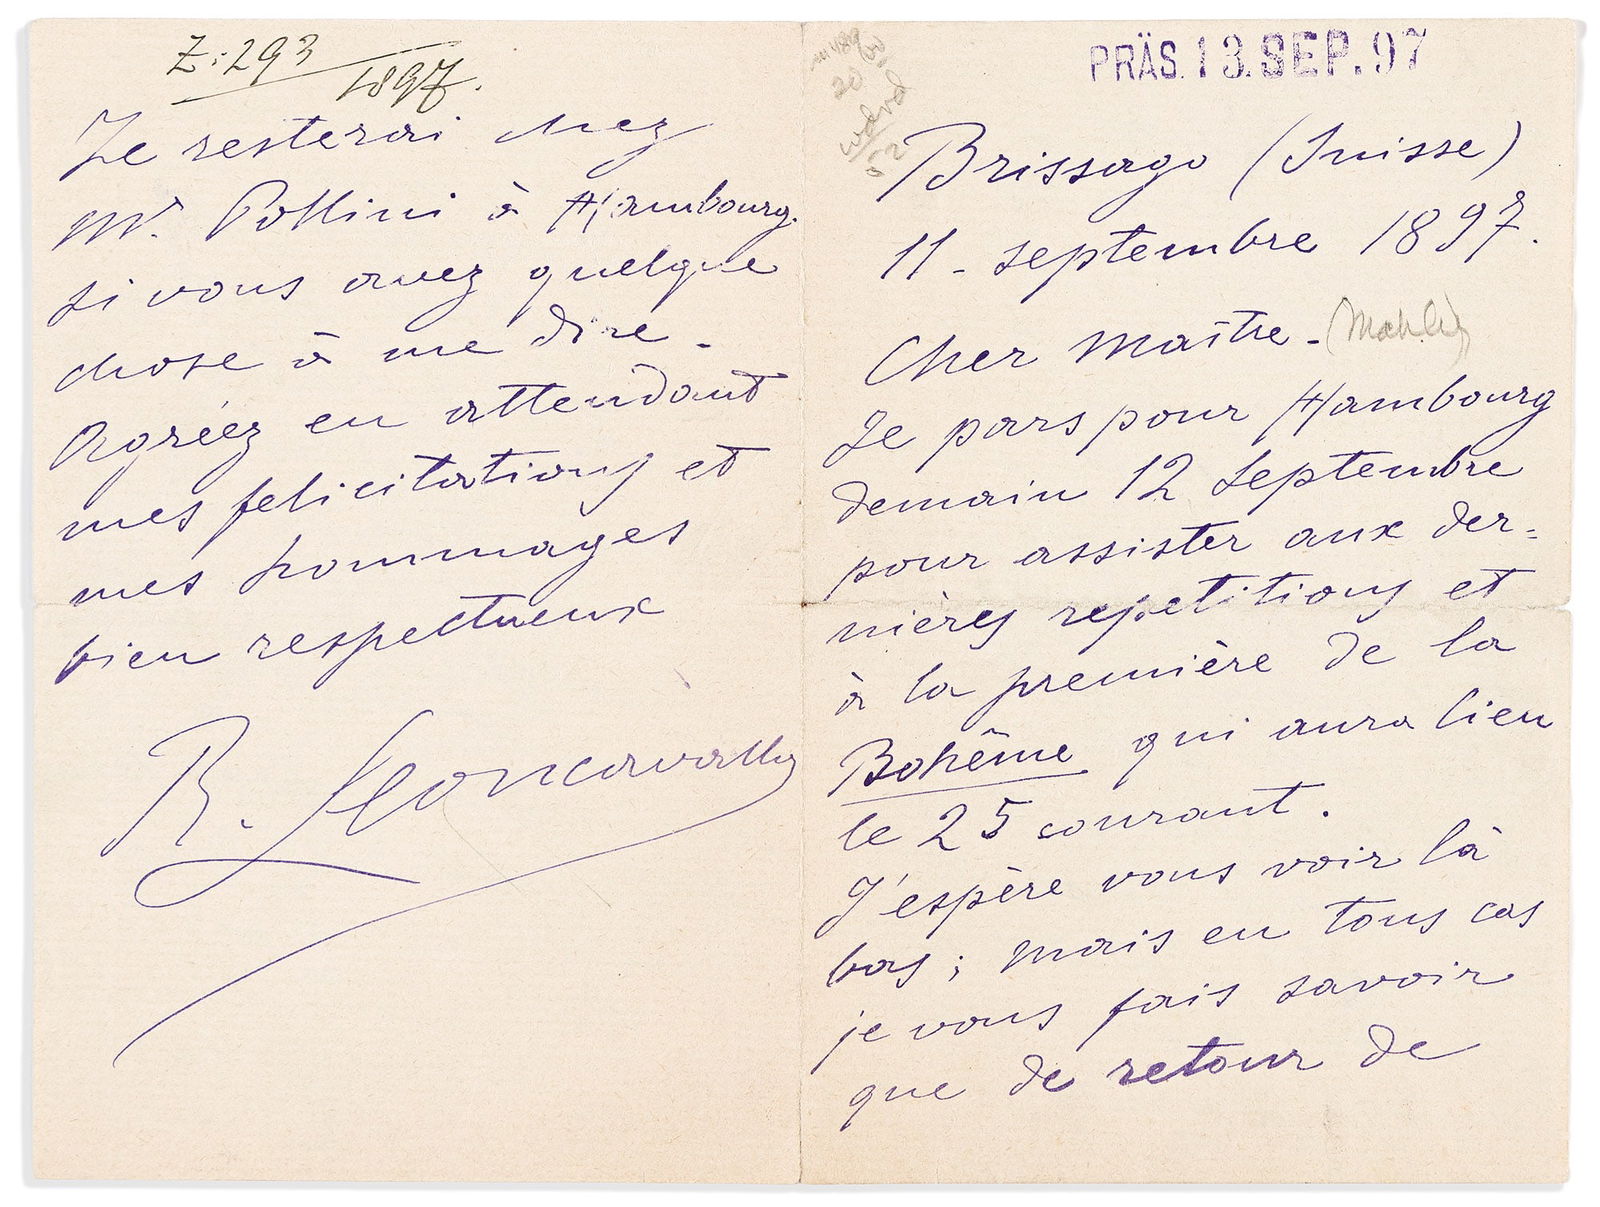 PRÄS. 13. SEP. 97
Brissago (Suisse)
11 - septembre 1897.
Cher Maître - (Mahler)
Je pars pour Hambourg
demain 12 Septembre
pour assister aux der=
nières repetitions et
à la première de la
Bohême qui aura lieu
le 25 courant.
J'espère vous voir là
bas; mais en tous cas
je vous fais savoir
que de retour de
Z: 293
1897.
Je resterai chez
Mr. Pollini à Hambourg.
si vous avez quelque
chose à me dire -
Agréez en attendant
mes felicitations et
mes hommages
bien respectueux
R. Leoncavallo